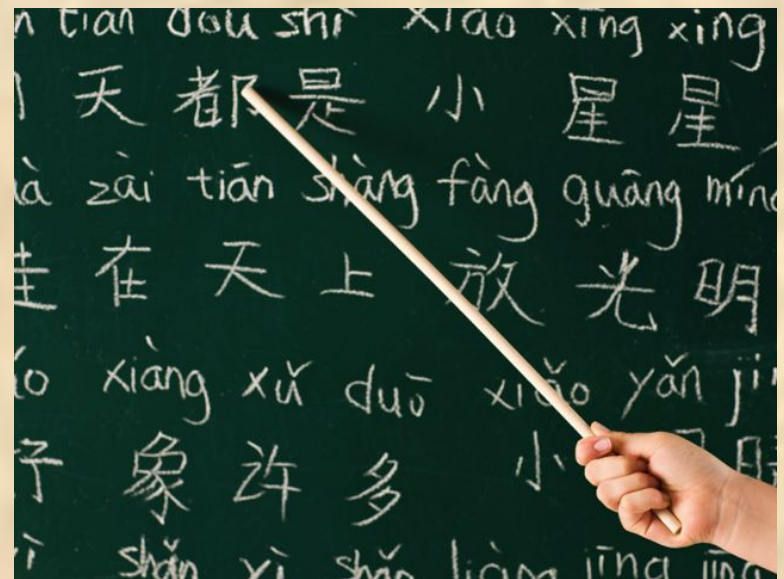 tiān dōu shì xiǎo xīng xīng
天 都 是 小 星 星
zài tiān shàng fàng guāng míng
在 天 上 放 光 明
xiàng xǔ duō xiǎo yǎn
象 许 多 小
shǎn yì shǎn liàng jīng jīng